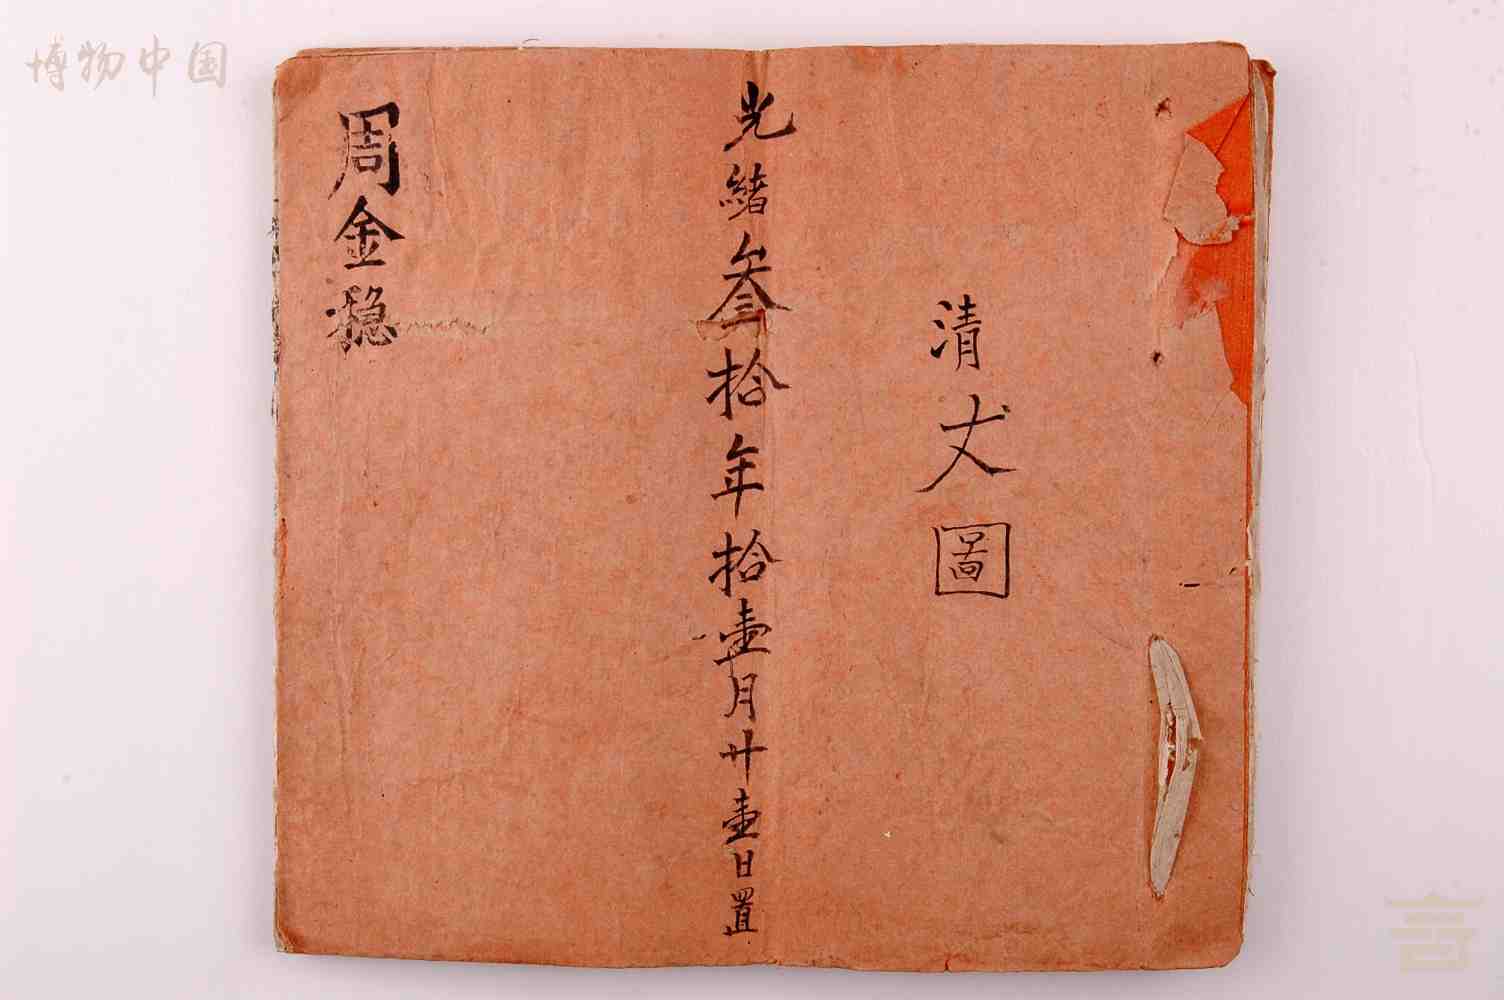 博物中国
清丈圖
光緒叁拾年拾壹月廿壹日置
周金穩